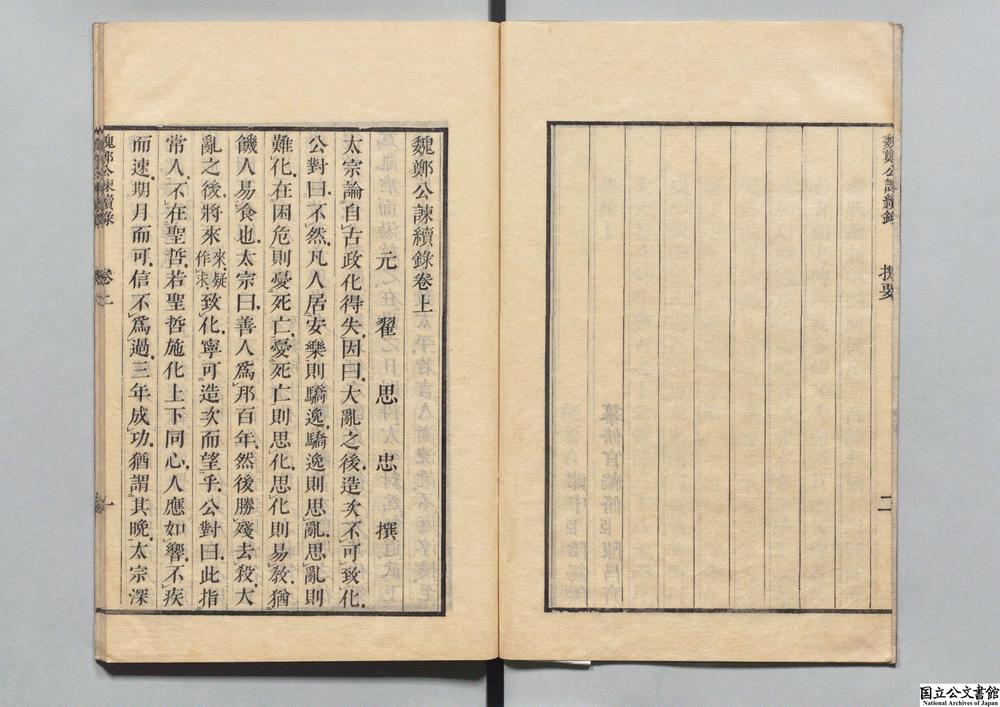 魏鄭公諫續錄
提要
二
魏鄭公諫續錄卷上
元 翟思忠 撰
太宗論自古政化得失因曰大亂之後造次不可致化
公對曰不然凡人居安樂則驕逸驕逸則思亂思亂則
難化在困危則憂死亡憂死亡則思化思化則易敎猶
饑人易食也太宗曰善人爲邦百年然後勝殘去殺大
亂之後將來來疑作求致化寧可造次而望乎公對曰此指
常人不在聖哲若聖哲施化上下同心人應如響不疾
而速期月而可信不爲過三年成功猶謂其晚太宗深
魏鄭公諫續錄
卷上
一
国立公文書館
National Archives of Japan